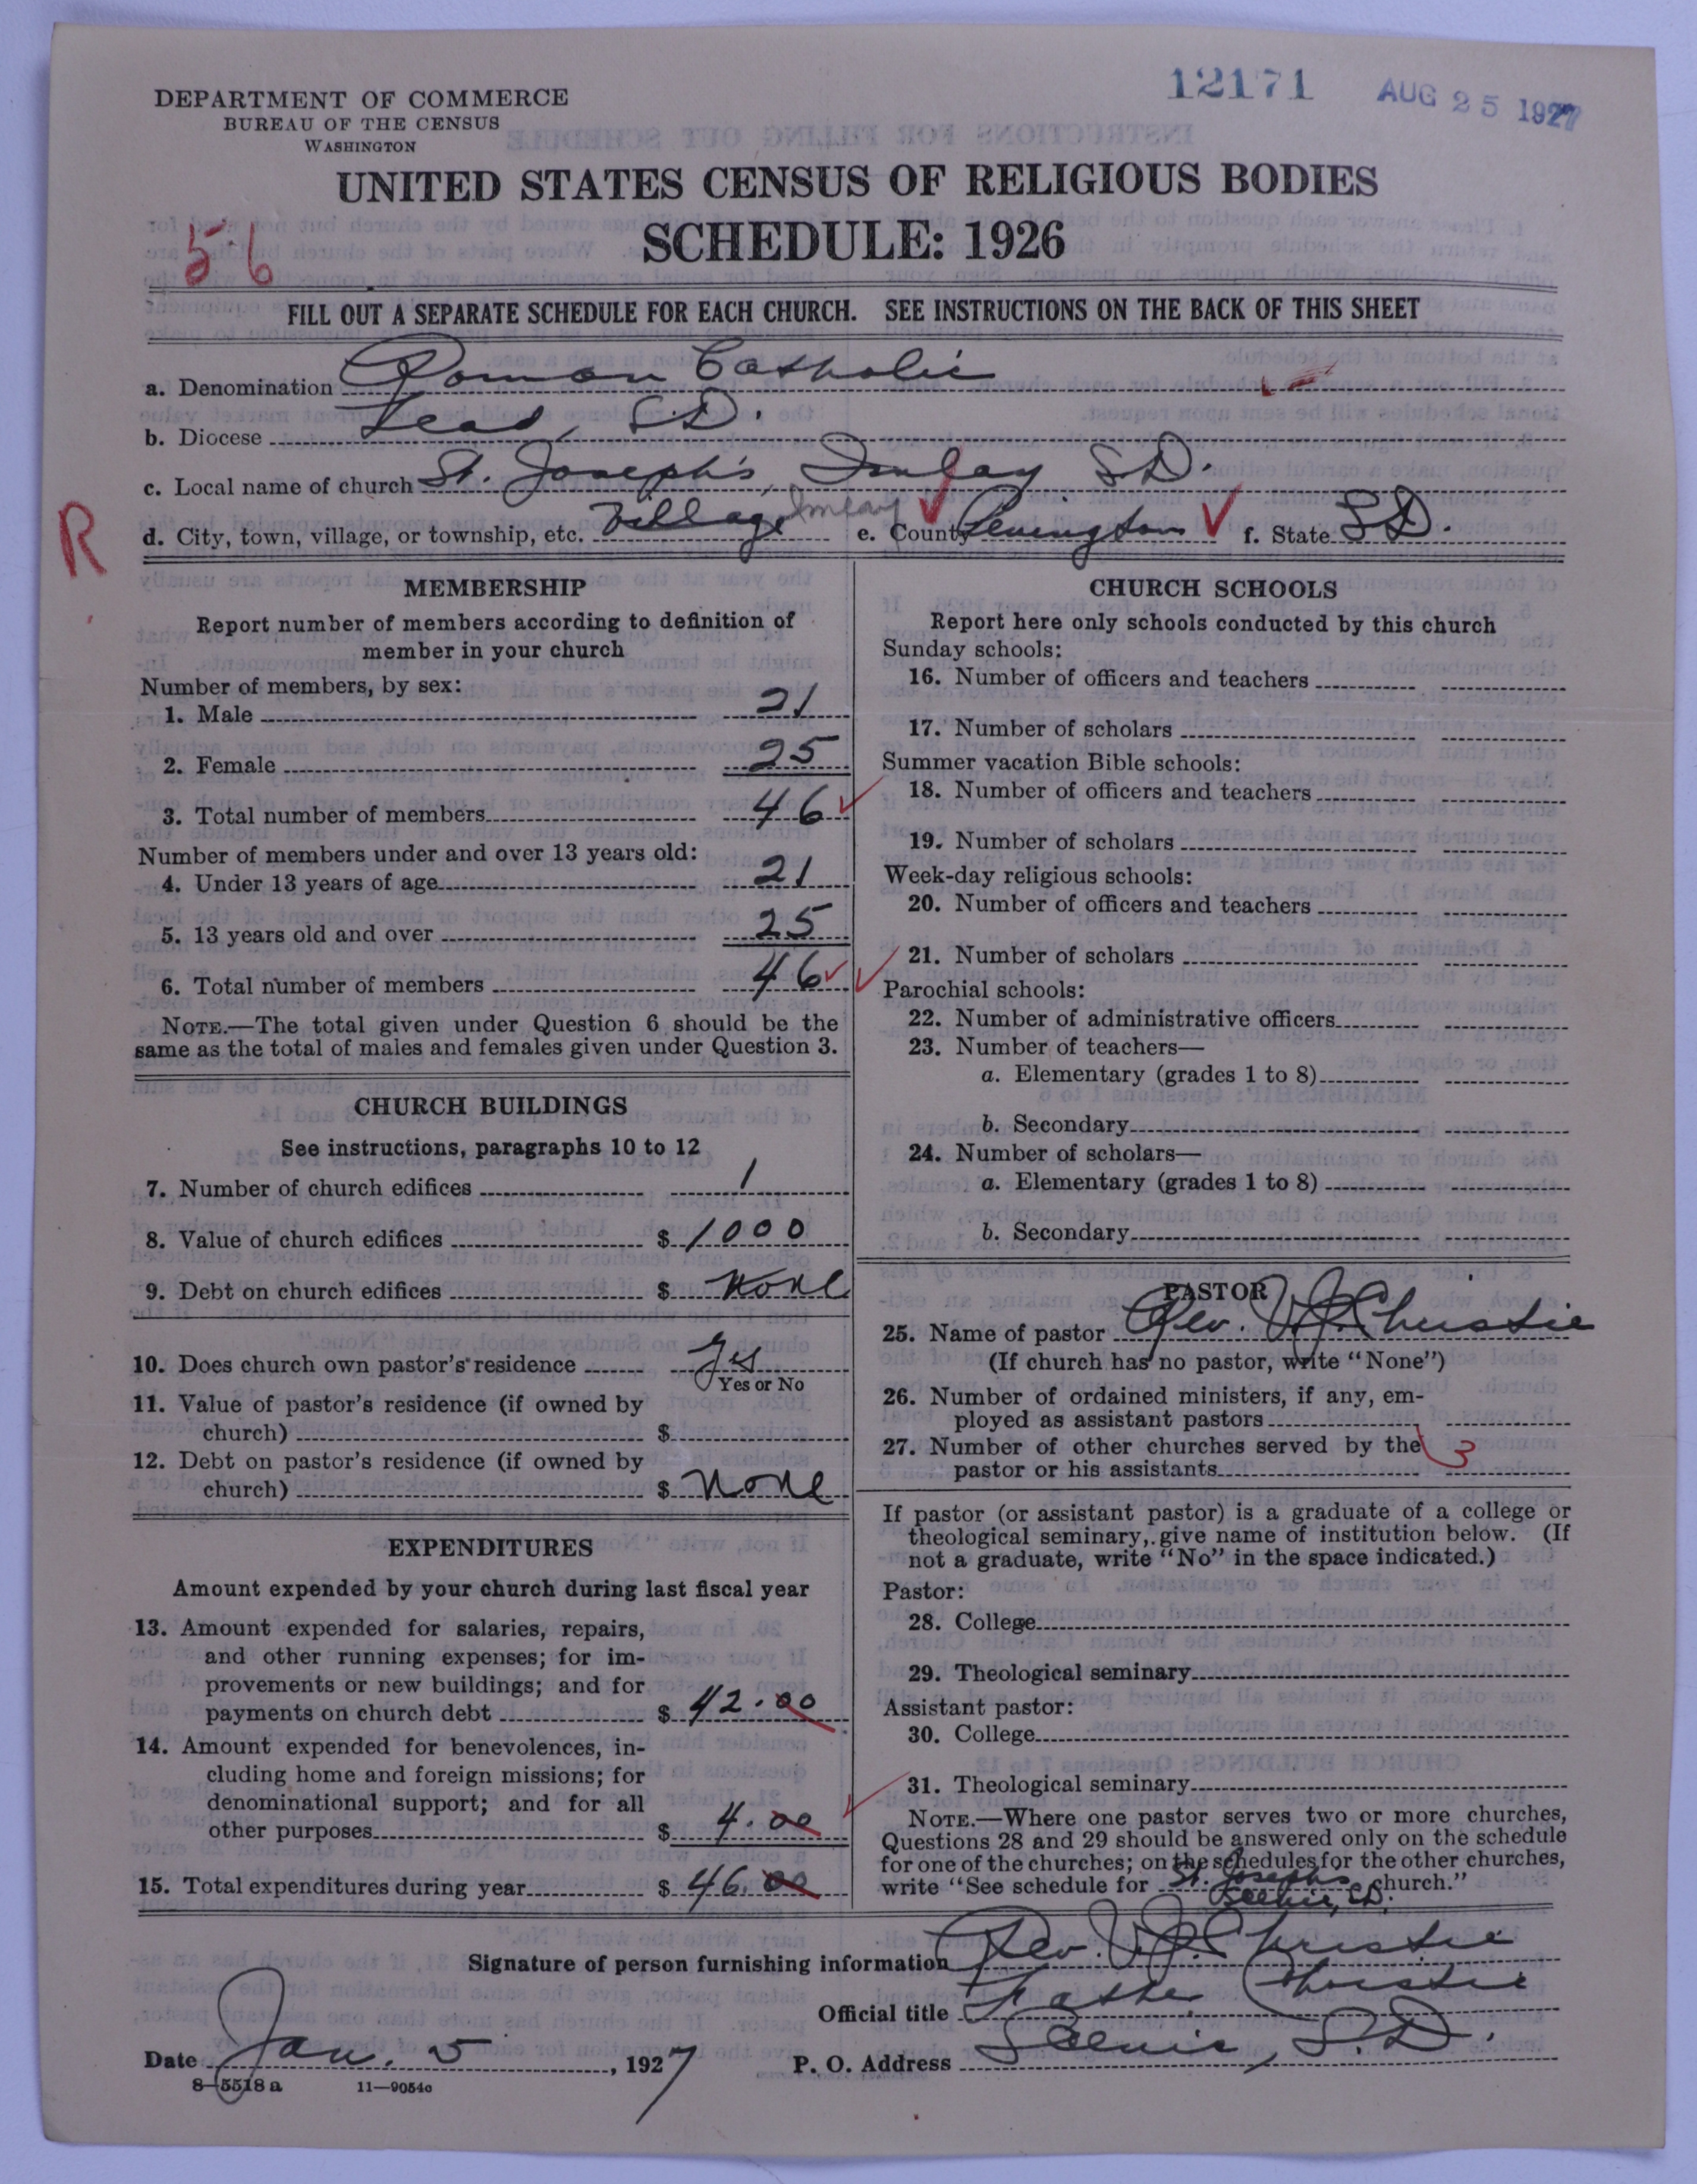 12171 AUG 25 1927
DEPARTMENT OF COMMERCE
BUREAU OF THE CENSUS
WASHINGTON
UNITED STATES CENSUS OF RELIGIOUS BODIES
SCHEDULE: 1926
56
FILL OUT A SEPARATE SCHEDULE FOR EACH CHURCH. SEE INSTRUCTIONS ON THE BACK OF THIS SHEET
a. Denomination Roman Catholic
b. Diocese Lead, S.D.
c. Local name of church St. Joseph's, Imlay S.D.
R
d. City, town, village, or township, etc. Village Imlay e. County Pennington f. State S.D.
MEMBERSHIP
Report number of members according to definition of
member in your church
Number of members, by sex:
1. Male 21
2. Female 25
3. Total number of members 46
Number of members under and over 13 years old:
4. Under 13 years of age 21
5. 13 years old and over 25
6. Total number of members 46
NOTE.—The total given under Question 6 should be the
same as the total of males and females given under Question 3.
CHURCH BUILDINGS
See instructions, paragraphs 10 to 12
7. Number of church edifices 1
8. Value of church edifices $ 1000
9. Debt on church edifices $ None
10. Does church own pastor's residence Yes
Yes or No
11. Value of pastor's residence (if owned by
church) $
12. Debt on pastor's residence (if owned by
church) $ None
EXPENDITURES
Amount expended by your church during last fiscal year
13. Amount expended for salaries, repairs,
and other running expenses; for im-
provements or new buildings; and for
payments on church debt $ 42.00
14. Amount expended for benevolences, in-
cluding home and foreign missions; for
denominational support; and for all
other purposes $ 4.00
15. Total expenditures during year $ 46.00
CHURCH SCHOOLS
Report here only schools conducted by this church
Sunday schools:
16. Number of officers and teachers
17. Number of scholars
Summer vacation Bible schools:
18. Number of officers and teachers
19. Number of scholars
Week-day religious schools:
20. Number of officers and teachers
21. Number of scholars
Parochial schools:
22. Number of administrative officers
23. Number of teachers—
a. Elementary (grades 1 to 8)
b. Secondary
24. Number of scholars—
a. Elementary (grades 1 to 8)
b. Secondary
PASTOR
25. Name of pastor Rev. V.J. Christie
(If church has no pastor, write "None")
26. Number of ordained ministers, if any, em-
ployed as assistant pastors
27. Number of other churches served by the
pastor or his assistants 3
If pastor (or assistant pastor) is a graduate of a college or
theological seminary, give name of institution below. (If
not a graduate, write "No" in the space indicated.)
Pastor:
28. College
29. Theological seminary
Assistant pastor:
30. College
31. Theological seminary
NOTE.—Where one pastor serves two or more churches,
Questions 28 and 29 should be answered only on the schedule
for one of the churches; on the schedules for the other churches,
write "See schedule for St. Josephs church."
Scenic, S.D.
Signature of person furnishing information Rev. V.J. Christie
Official title Father Christie
Date Jan. 5, 1927 P. O. Address Scenic, S.D.
8—5518 a 11—9054c